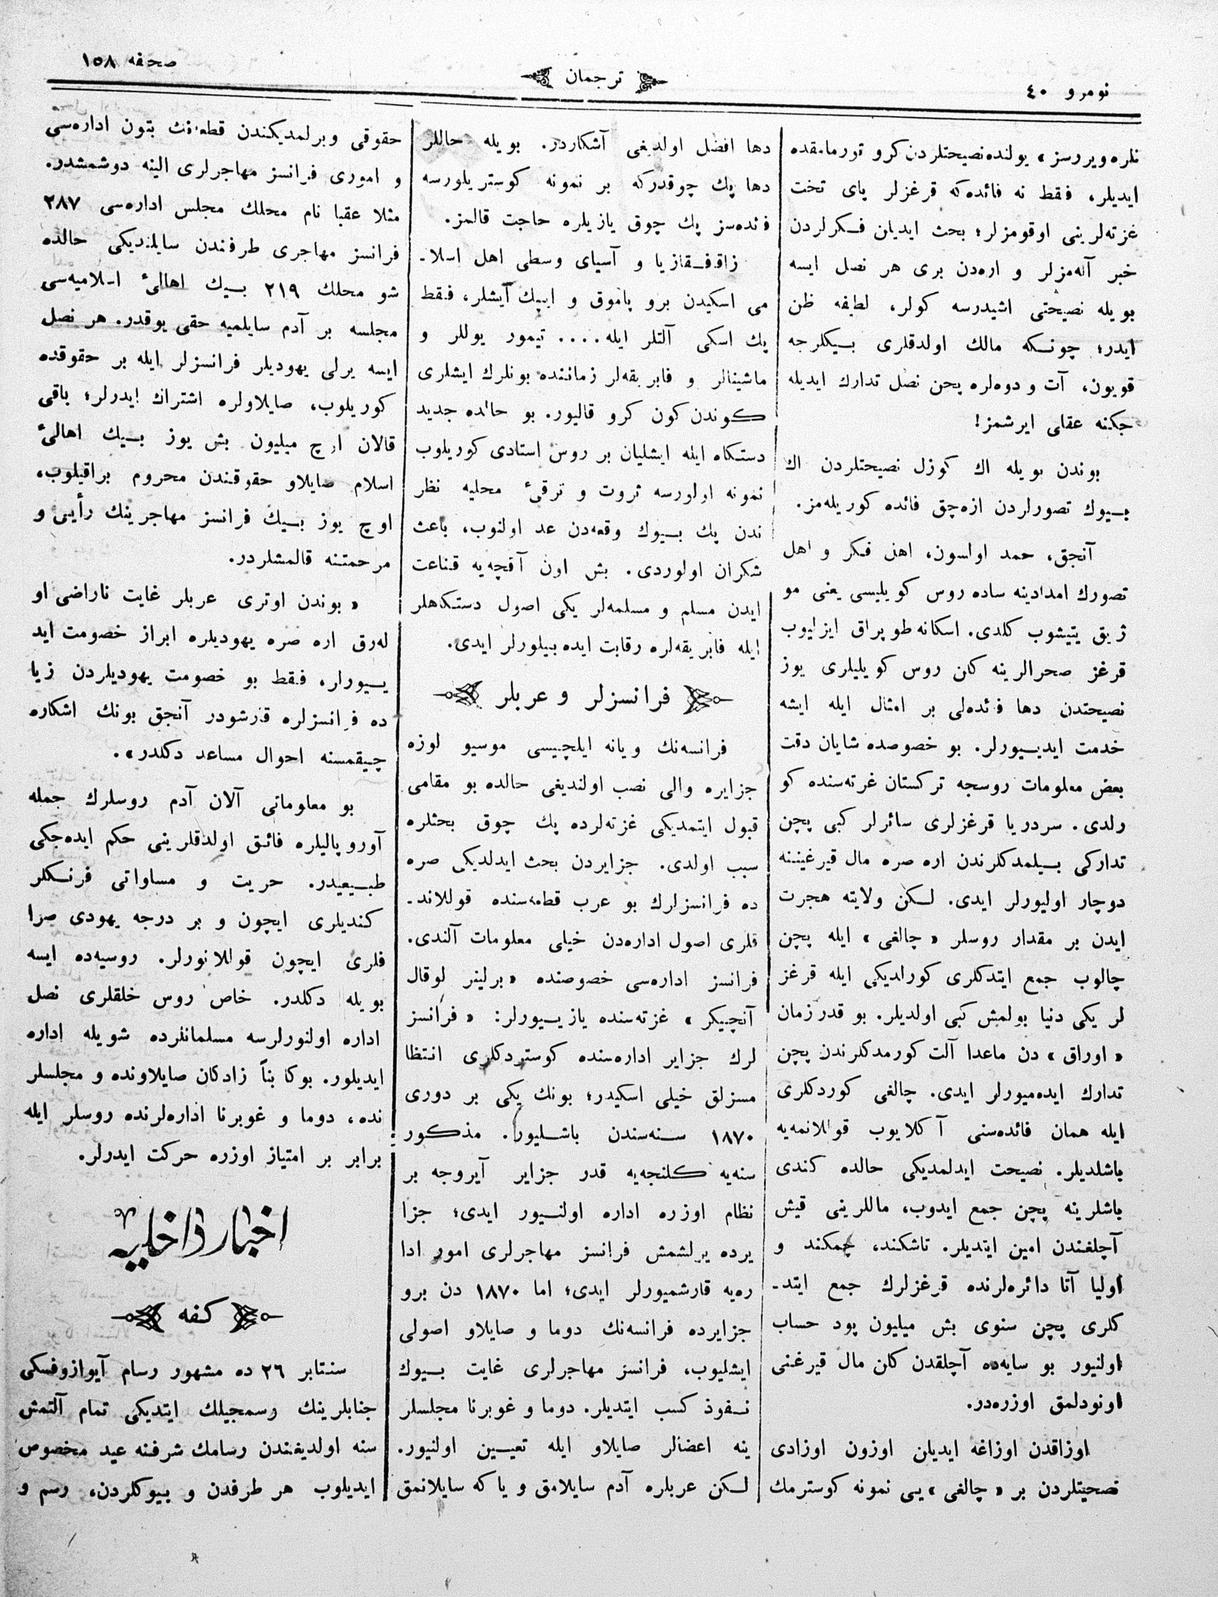 نومرو ٤٠
ترجمان
صحفه ١٥٨
نلره ويررسز» يولنده نصيحتلردن كرو تورمامقده
ايديلر، فقط نه فائده كه قرغزلر پاى تخت
غزته لرينى اوقومزلر؛ بحث ايديلن فكرلردن
خبر آنه مزلر و اره دن برى هر نصل ايسه
بويله نصيحتى اشيدرسه كولر، لطيفه ظن
ايدر؛ چونكه مالك اولدقلرى بيكلرجه
قويون، آت و دوه لره پچن نصل تدارك ايديله
جكنه عقلى ايرشمز!
بوندن بويله اك كوزل نصيحتلردن اك
بيوك تصورلردن ازه چق فائده كوريله مز.
آنجق، حمد اولسون، اهل فكر و اهل
تصورك امدادينه ساده روس كويليسى يغنى مو
ژيق يتيشوب كلدى. اسكانه طوپراق ايزليوب
قرغز صحرالرينه كلن روس كويليلرى يوز
نصيحتدن دها فائده لى بر امثال ايله ايشه
خدمت ايديورلر. بو خصوصده شايان دقت
بعض معلومات روسجه تركستان غزته سنده كو
رلدى. سردريا قرغزلرى سائرلر كبى پچن
تداركى بيلمدكلرندن اره صره مال قيرغيننه
دوچار اوليورلر ايدى. لكن ولايته هجرت
ايدن بر مقدار روسلر «چالغى» ايله پچن
چالوب جمع ايتدكلرى كورلديكى ايله قرغز
لر يكى دنيا بولمش كبى اولديلر. بو قدر زمان
«اوراق» دن ماعدا آلت كورمدكلرندن پچن
تدارك ايده ميورلر ايدى. چالغى كوردكلرى
ايله همان فائده سنى آكلايوب قوللانمه يه
باشلديلر. نصيحت ايدلمديكى حالده كندى
باشلرينه پچن جمع ايدوب، ماللرينى قيش
آچلغندن امين ايتديلر. تاشكند، چمكند و
اوليا آتا دائره لرنده قرغزلرك جمع ايتد-
كلرى پچن سنوى بش ميليون پود حساب
اولنيور بو سايه ده آچلقدن كلن مال قيرغنى
اونودلمق اوزره در.
اوزاقدن اوزاغه ايديلن اوزون اوزادى
نصحيتلردن بر «چالغى» يى نمونه كوسترمك
دها افضل اولديغى آشكاردر. بويله حاللر
دها پك چوقدركه بر نمونه كوستريلورسه
فائده سز پك چوق يازيلره حاجت قالمز.
زاقفقازيا و آسياى وسطى اهل اسلا-
مى اسكيدن برو پاموق و ايپك آيشلر، فقط
پك اسكى آلتلر ايله.... تيمور يوللر و
ماشينالر و فابريقه لر زماننده بونلرك ايشلرى
كوندن كون كرو قاليور. بو حالده جديد
دستكاه ايله ايشليان بر روس استادى كوريلوب
نمونه اولورسه ثروت و ترقىٔ محليه نظر
ندن پك بيوك وقعه دن عد اولنوب، باعث
شكران اولوردى. بش اون آقچه يه قناعت
ايدن مسلم و مسلمه لر يكى اصول دستكاهلر
ايله فابريقه لره رقابت ايده بيلورلر ايدى.
فرانسزلر و عربلر
فرانسه نك ويانه ايلچيسى موسيو لوزه
جزايره والى نصب اولنديغى حالده بو مقامى
قبول ايتمديكى غزته لرده پك چوق بحثلره
سبب اولدى. جزايردن بحث ايدلديكى صره
ده فرانسزلرك بو عرب قطعه سنده قوللاند-
قلرى اصول اداره دن خيلى معلومات آلندى.
فرانسز اداره سى خصوصنده «برلينر لوقال
آنچيكر» غزته سنده يازيورلر: «فرانسز
لرك جزاير اداره سنده كوستردكلرى انتظا
مسزلق خيلى اسكيدر؛ بونك يكى بر دورى
١٨٧٠ سنه سندن باشليور. مذكور
سنه يه كلنجه يه قدر جزاير آيروجه بر
نظام اوزره اداره اولنيور ايدى؛ جزا
يرده يرلشمش فرانسز مهاجرلرى امور ادا
ره يه قارشميورلر ايدى؛ اما ١٨٧٠ دن برو
جزايرده فرانسه نك دوما و صايلاو اصولى
ايشليوب، فرانسز مهاجرلرى غايت بيوك
نفوذ كسب ايتديلر. دوما و غوبرنا مجلسلر
ينه اعضالر صايلاو ايله تعيين اولنيور.
لكن عربلره آدم سايلامق و يا كه سايلانمق
حقوقى ويرلمديكندن قطعه نك بتون اداره سى
و امورى فرانسز مهاجرلرى الينه دوشمشدر.
مثلا عقبا نام محلك مجلس اداره سى ٢٨٧
فرانسز مهاجرى طرفندن سايلنديكى حالده
شو محلك ٢١٩ بيك اهالىٔ اسلاميه سى
مجلسه بر آدم سايلميه حقى يوقدر. هر نصل
ايسه يرلى يهوديلر فرانسزلر ايله بر حقوقده
كوريلوب، صايلاولره اشتراك ايدرلر؛ باقى
قالان اوچ ميليون بش يوز بيك اهالىٔ
اسلام صايلاو حقوقندن محروم براقيلوب،
اوچ يوز بيك فرانسز مهاجرينك رأيى و
مرحمتنه قالمشلردر.
«بوندن اوترى عربلر غايت ناراضى او
له رق اره صره يهوديلره ابراز خصومت ايد
يورلر، فقط بو خصومت يهوديلردن زيا
ده فرانسزلره قارشودر آنجق بونك اشكاره
چيقمسنه احوال مساعد دكلدر».
بو معلوماتى آلان آدم روسلرك جمله
آوروپاليلره فائق اولدقلرينى حكم ايده جكى
طبيعيدر. حريت و مساواتى فرنكلر
كنديلرى ايچون و بر درجه يهودى صرا
فلرى ايچون قوللانورلر. روسيه ده ايسه
بويله دكلدر. خاص روس خلقلرى نصل
اداره اولنورلرسه مسلمانلرده شويله اداره
ايديلور. بوكا بناً زادكان صايلاونده و مجلسلر
نده، دوما و غوبرنا اداره لرنده روسلر ايله
برابر بر امتياز اوزره حركت ايدرلر.
اخبار داخليه
كفه
سنتابر ٢٦ ده مشهور رسام آيوازوفسكى
جنابلرينك رسمجيلك ايتديكى تمام آلتمش
سنه اولديغندن رسامك شرفنه عيد مخصوص
ايديلوب هر طرفدن و بيوكلردن، رسم و